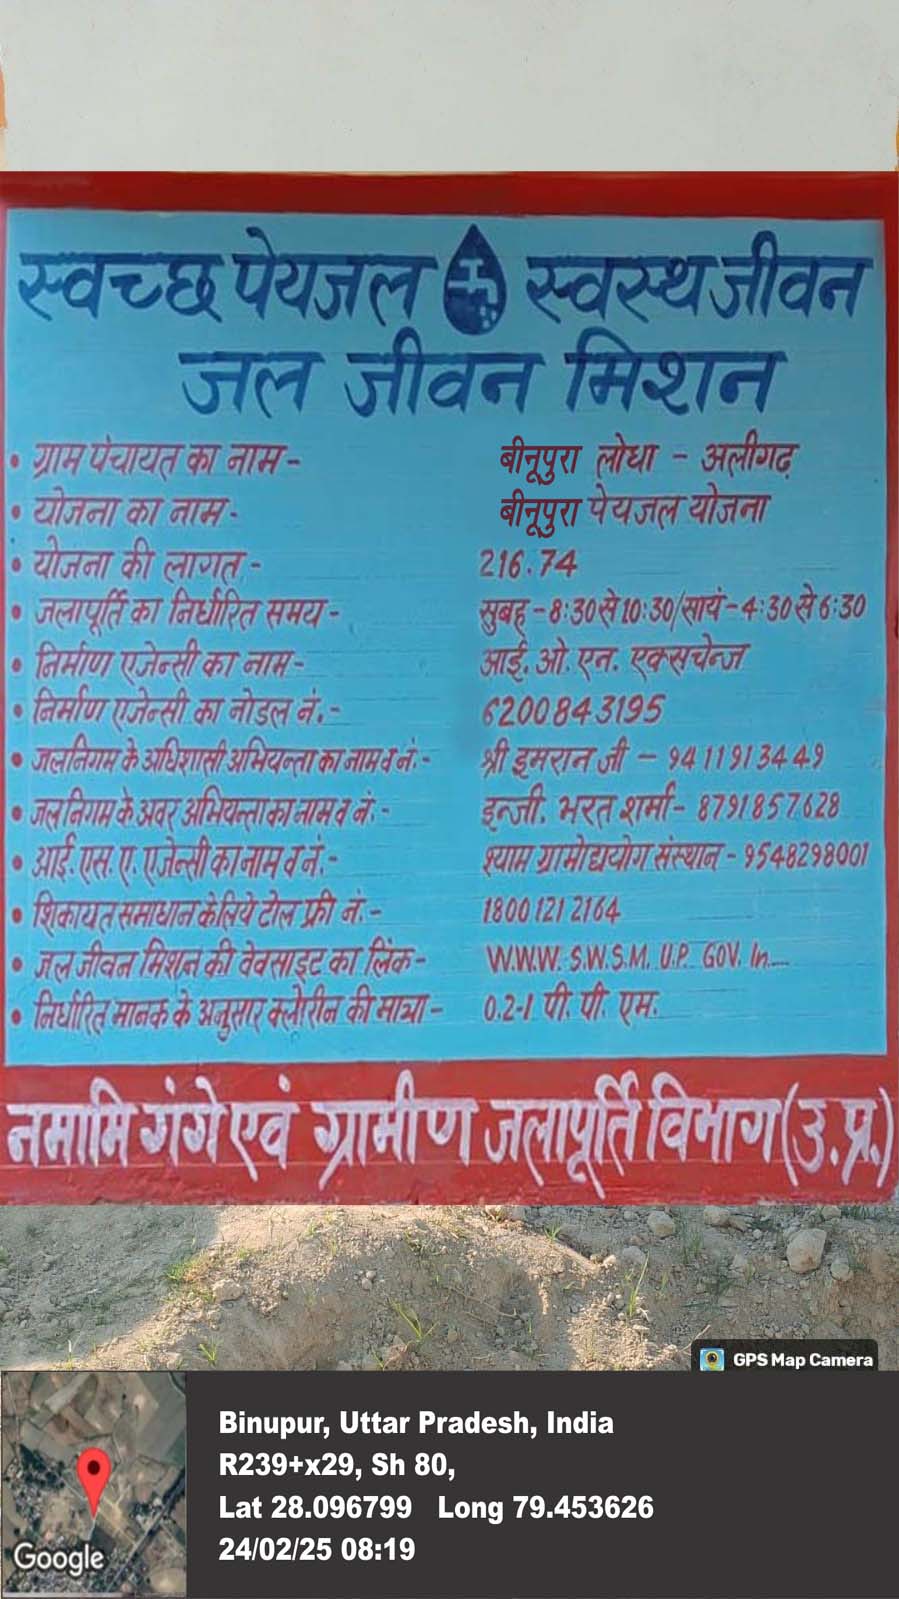 स्वच्छ पेयजल स्वस्थ जीवन
जल जीवन मिशन
• ग्राम पंचायत का नाम - बीनूपुरा लोधा - अलीगढ़
• योजना का नाम - बीनूपुरा पेयजल योजना
• योजना की लागत - 216.74
• जलापूर्ति का निर्धारित समय - सुबह - 8:30 से 10:30/सायं - 4:30 से 6:30
• निर्माण एजेन्सी का नाम - आई. ओ. एन. एक्सचेन्ज
• निर्माण एजेन्सी का नोडल नं. - 6200843195
• जलनिगम के अधिशासी अभियन्ता का नाम व नं. - श्री इमरान जी - 9411913449
• जलनिगम के अवर अभियन्ता का नाम व नं. - इन्जी. भरत शर्मा - 8791857628
• आई. एस. ए. एजेन्सी का नाम व नं. - श्याम ग्रामोद्ययोग संस्थान - 9548298001
• शिकायत समाधान के लिये टोल फ्री नं. - 1800 121 2164
• जल जीवन मिशन की वेबसाइट का लिंक - W.W.W. S.W.S.M. U.P. GOV. In....
• निर्धारित मानक के अनुसार क्लोरीन की मात्रा - 0.2-1 पी. पी. एम.
नमामि गंगे एवं ग्रामीण जलापूर्ति विभाग (उ.प्र.)
GPS Map Camera
Binupur, Uttar Pradesh, India
R239+x29, Sh 80,
Lat 28.096799 Long 79.453626
24/02/25 08:19
Google